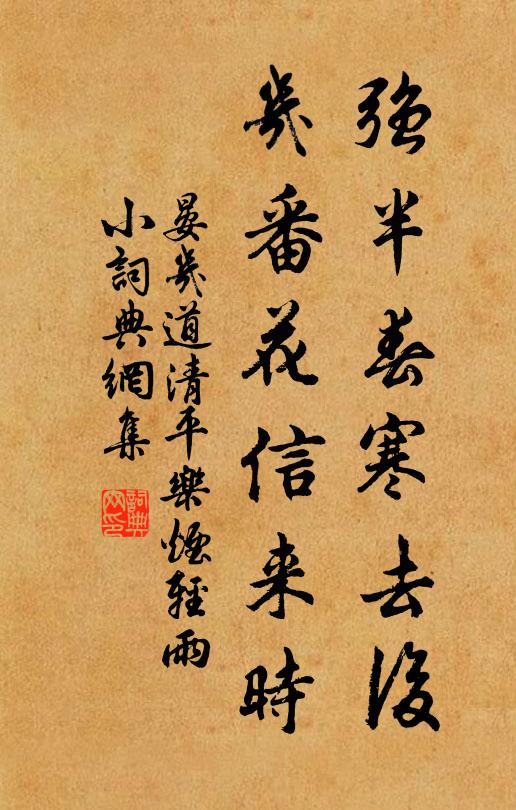 強半春寒去後
幾番花信来時
晏幾道清平樂煙輕雨
小詞典網集
詞典
网印